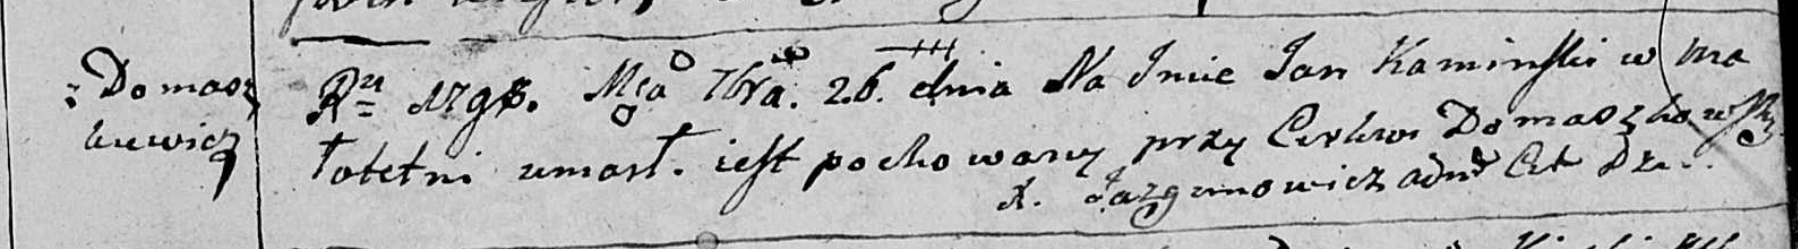 Domasz
kiewicz
Ru 1798. Msca 7bra. 26. dnia Na Jmie Jan Kaminski w ma
łoletni umarł. iest pochowany przy Cerkwi Domaszkowsky
X. Jazgunowicz adm Cer Dzie..